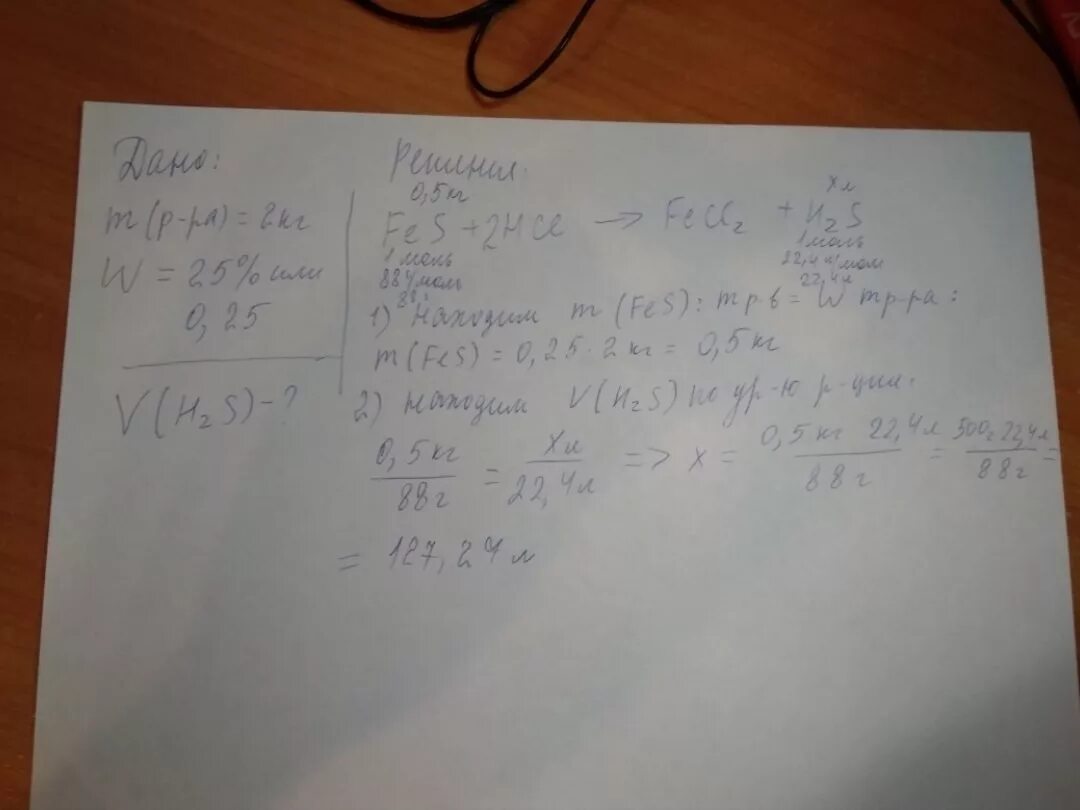 Дано:
m(р-ра) = 2кг
W = 25% или
0,25
V(H₂S)-?
Решения.
0,5кг
хл
FeS + 2HCl → FeCl₂ + H₂S
1 моль
1 моль
88 г/моль
22,4 л/мол
88г
22,4л
1) Находим m (FeS): m р-в = W m р-ра:
m(FeS) = 0,25 · 2 кг = 0,5 кг
2) находим V(H₂S) по ур-ю р-ции:
0,5кг/88г = Хл/22,4л => х = 0,5 кг 22,4л/88г = 500г 22,4л/88г =
= 127,27 л